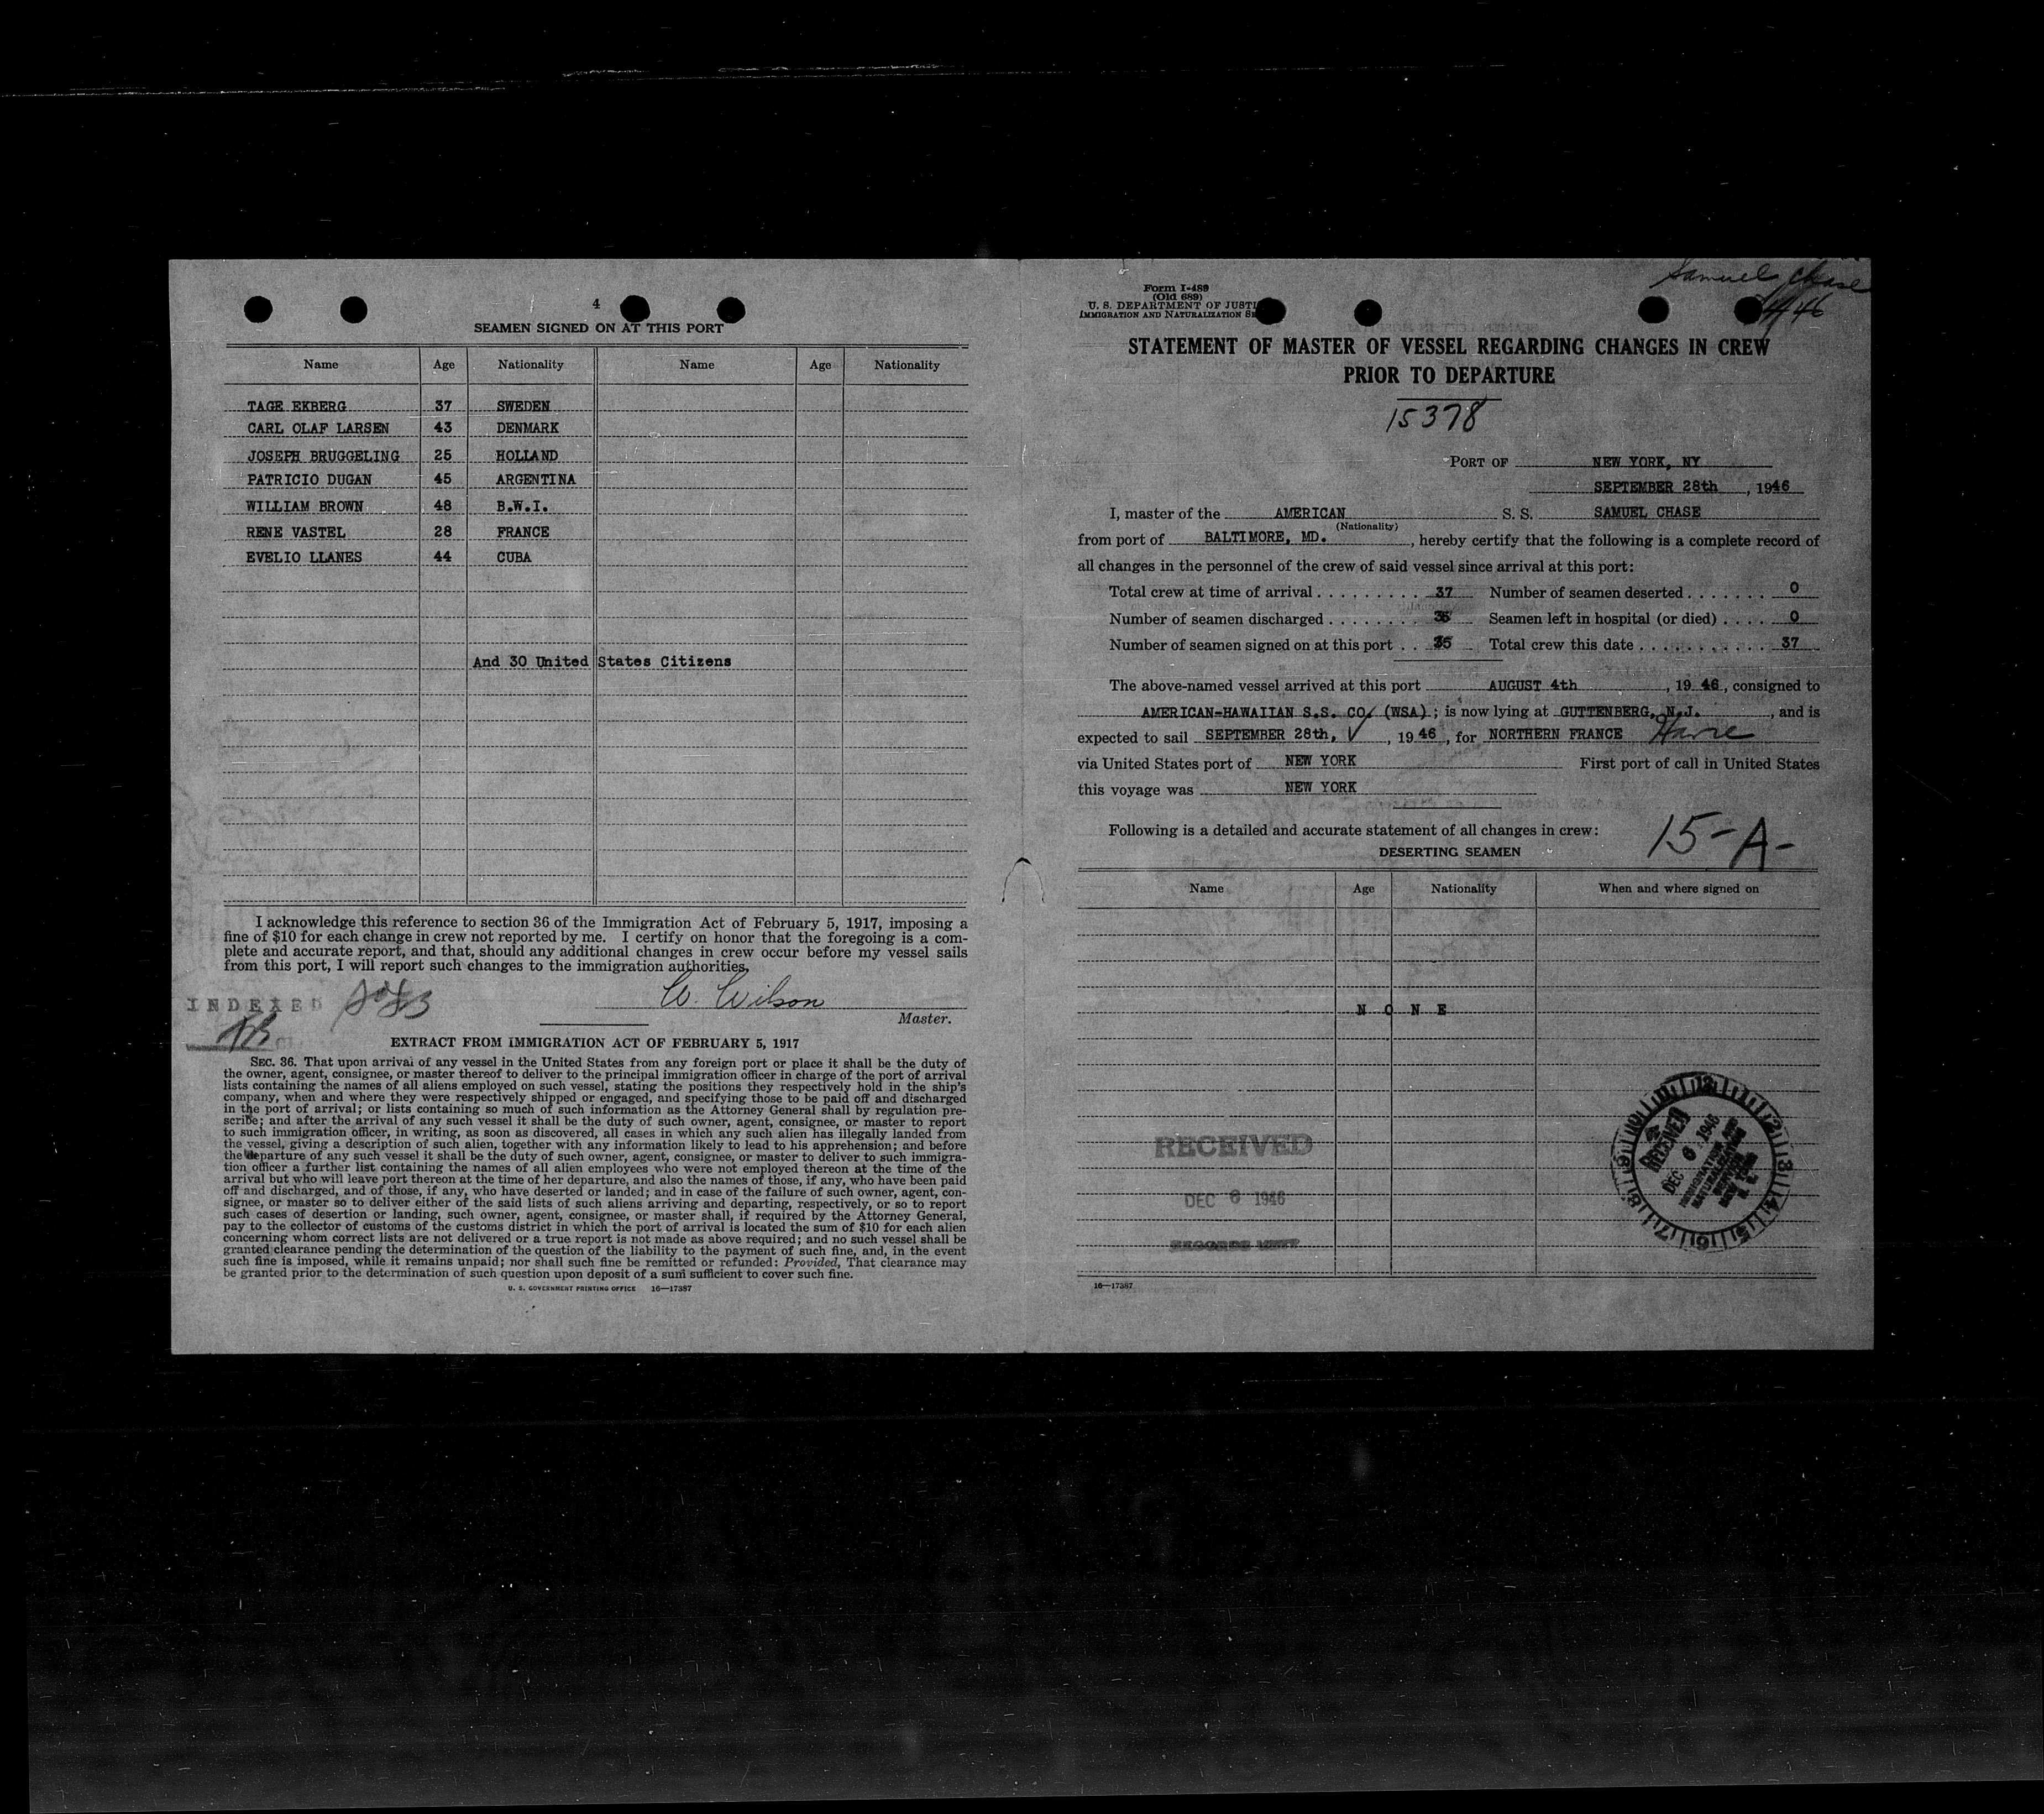 4
SEAMEN SIGNED ON AT THIS PORT
Name Age Nationality Name Age Nationality
TAGE EKBERG 37 SWEDEN
CARL OLAF LARSEN 43 DENMARK
JOSEPH BRUGGELING 25 HOLLAND
PATRICIO DUGAN 45 ARGENTINA
WILLIAM BROWN 48 B.W.I.
RENE VASTEL 28 FRANCE
EVELIO LLANES 44 CUBA
And 30 United States Citizens
I acknowledge this reference to section 36 of the Immigration Act of February 5, 1917, imposing a
fine of $10 for each change in crew not reported by me. I certify on honor that the foregoing is a com-
plete and accurate report, and that, should any additional changes in crew occur before my vessel sails
from this port, I will report such changes to the immigration authorities.
W. Wilson
INDEXED
Master.
EXTRACT FROM IMMIGRATION ACT OF FEBRUARY 5, 1917
SEC. 36. That upon arrival of any vessel in the United States from any foreign port or place it shall be the duty of
the owner, agent, consignee, or master thereof to deliver to the principal immigration officer in charge of the port of arrival
lists containing the names of all aliens employed on such vessel, stating the positions they respectively hold in the ship's
company, when and where they were respectively shipped or engaged, and specifying those to be paid off and discharged
in the port of arrival; or lists containing so much of such information as the Attorney General shall by regulation pre-
scribe; and after the arrival of any such vessel it shall be the duty of such owner, agent, consignee, or master to report
to such immigration officer, in writing, as soon as discovered, all cases in which any such alien has illegally landed from
the vessel, giving a description of such alien, together with any information likely to lead to his apprehension; and before
the departure of any such vessel it shall be the duty of such owner, agent, consignee, or master to deliver to such immigra-
tion officer a further list containing the names of all alien employees who were not employed thereon at the time of the
arrival but who will leave port thereon at the time of her departure, and also the names of those, if any, who have been paid
off and discharged, and of those, if any, who have deserted or landed; and in case of the failure of such owner, agent, con-
signee, or master so to deliver either of the said lists of such aliens arriving and departing, respectively, or so to report
such cases of desertion or landing, such owner, agent, consignee, or master shall, if required by the Attorney General,
pay to the collector of customs of the customs district in which the port of arrival is located the sum of $10 for each alien
concerning whom correct lists are not delivered or a true report is not made as above required; and no such vessel shall be
granted clearance pending the determination of the question of the liability to the payment of such fine, and, in the event
such fine is imposed, while it remains unpaid; nor shall such fine be remitted or refunded: Provided, That clearance may
be granted prior to the determination of such question upon deposit of a sum sufficient to cover such fine.
U. S. GOVERNMENT PRINTING OFFICE 16—17387
Samuel Chase
Form I-489
(Old 689)
U. S. DEPARTMENT OF JUSTI
IMMIGRATION AND NATURALIZATION SE
STATEMENT OF MASTER OF VESSEL REGARDING CHANGES IN CREW
PRIOR TO DEPARTURE
15378
PORT OF NEW YORK, NY
SEPTEMBER 28th, 1946
I, master of the AMERICAN S. S. SAMUEL CHASE
(Nationality)
from port of BALTIMORE, MD., hereby certify that the following is a complete record of
all changes in the personnel of the crew of said vessel since arrival at this port:
Total crew at time of arrival . . . . . . . . . 37 Number of seamen deserted . . . . . . . 0
Number of seamen discharged . . . . . . . . Seamen left in hospital (or died) . . . . 0
Number of seamen signed on at this port . . 35 Total crew this date . . . . . . . . . . . 37
The above-named vessel arrived at this port AUGUST 4th, 19 46, consigned to
AMERICAN-HAWAIIAN S.S. CO. (WSA); is now lying at GUTTENBERG, N.J., and is
expected to sail SEPTEMBER 28th, 19 46, for NORTHERN FRANCE Havre
via United States port of NEW YORK First port of call in United States
this voyage was NEW YORK
Following is a detailed and accurate statement of all changes in crew:
15-A-
DESERTING SEAMEN
Name Age Nationality When and where signed on
N O N E
RECEIVED
DEC 6 1946
RECEIVED
DEC 6 1946
16—17387